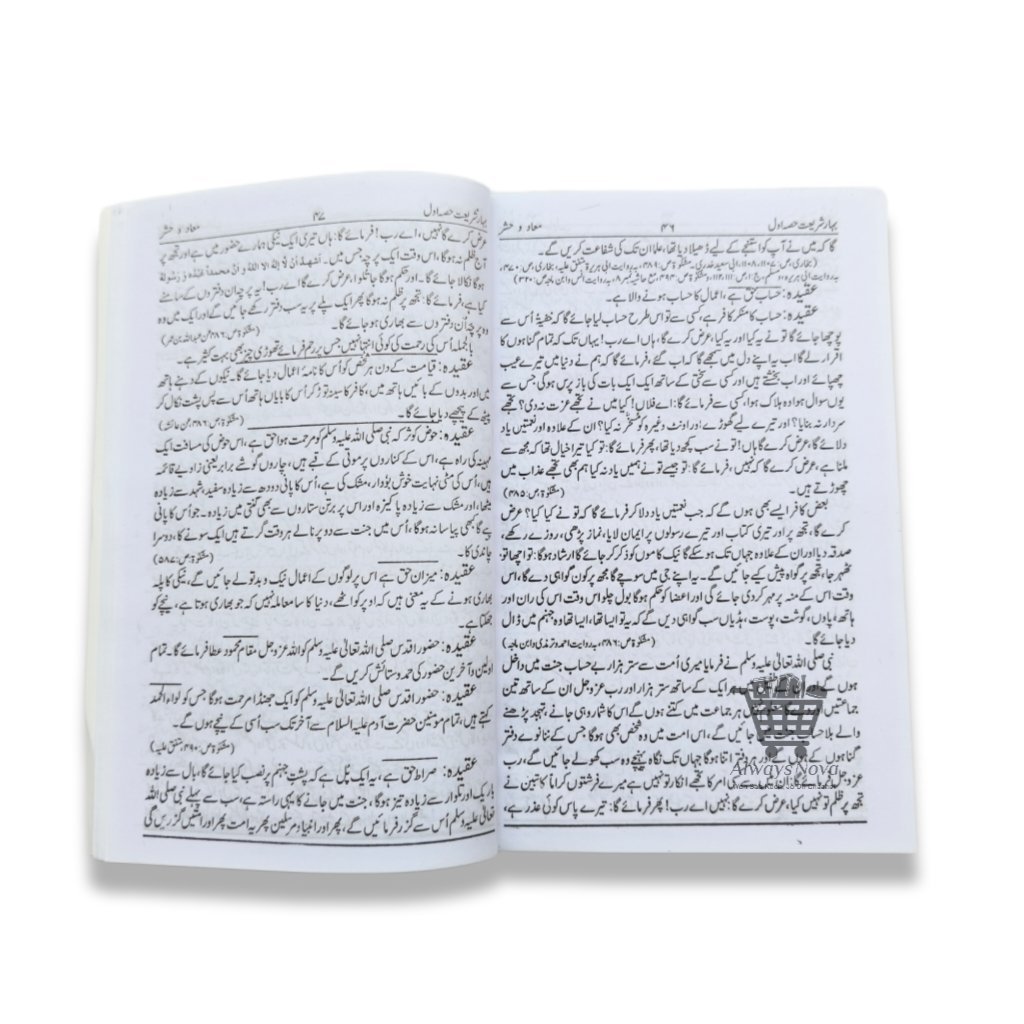 بہار شریعت حصہ اول ۴۶ معاد و حشر
گا کہ میں نے آپ کو استنجے کے لیے ڈھیلا دیا تھا، علما ان تک کی شفاعت کریں گے۔
عقیدہ: حساب حق ہے، اعمال کا حساب ہونے والا ہے۔
عقیدہ: حساب کا منکر کافر ہے، کسی سے تو اس طرح حساب لیا جائے گا کہ خفیۃً اُس سے
پوچھا جائے گا تو نے یہ کیا اور یہ کیا، عرض کرے گا، ہاں اے رب! یہاں تک کہ تمام گناہوں کا
اقرار لے گا اب یہ اپنے دل میں سمجھے گا کہ اب گئے، فرمائے گا کہ ہم نے دنیا میں تیرے عیب
چھپائے اور اب بخشتے ہیں اور کسی سے سختی کے ساتھ ایک ایک بات کی باز پرس ہوگی جس سے
یوں سوال ہوا وہ ہلاک ہوا، کسی سے فرمائے گا: اے فلاں! کیا میں نے تجھے عزت نہ دی؟ تجھے
سردار نہ بنایا؟ اور تیرے لیے گھوڑے اور اونٹ وغیرہ کو مسخر نہ کیا؟ ان کے علاوہ اور نعمتیں یاد
دلائے گا، عرض کرے گا ہاں! تو نے سب کچھ دیا تھا، پھر فرمائے گا: تو کیا تیرا خیال تھا کہ مجھ سے
ملنا ہے، عرض کرے گا کہ نہیں، فرمائے گا: تو جیسے تو نے ہمیں یاد نہ کیا ہم بھی تجھے عذاب میں
چھوڑتے ہیں۔ (مشکوٰۃ ص: ۳۸۵)
بعض کافر ایسے بھی ہوں گے کہ جب نعمتیں یاد دلا کر فرمائے گا کہ تو نے کیا کیا؟ عرض
کرے گا، تجھ پر اور تیری کتاب اور تیرے رسولوں پر ایمان لایا، نماز پڑھی، روزے رکھے،
صدقہ دیا اور ان کے علاوہ جہاں تک ہو سکے گا نیک کاموں کو ذکر کر جائے گا ارشاد ہوگا: تو اچھا تو
ٹھہر جا، تجھ پر گواہ پیش کیے جائیں گے۔ یہ اپنے جی میں سوچے گا مجھ پر کون گواہی دے گا، اس
وقت اس کے منہ پر مہر کر دی جائے گی اور اعضا کو حکم ہوگا بول چلو اس وقت اس کی ران اور
ہاتھ، پاؤں، گوشت، پوست، ہڈیاں سب گواہی دیں گے کہ یہ تو ایسا تھا، ایسا تھا وہ جہنم میں ڈال
دیا جائے گا۔
نبی صلی اللہ تعالیٰ علیہ وسلم نے فرمایا میری اُمت سے ستر ہزار بے حساب جنت میں داخل
ہوں گے اور ایک کے ساتھ ستر ہزار اور رب عزوجل ان کے ساتھ تین
جماعتیں اور ہر جماعت میں کتنے ہوں گے اس کا شمار وہی جانے، تہجد پڑھنے
والے بلا حساب جائیں گے، اس امت میں وہ شخص بھی ہوگا جس کے ننانوے دفتر
گناہوں کے ہوں گے اور ہر دفتر اتنا ہوگا جہاں تک نگاہ پہنچے وہ سب کھولے جائیں گے، رب
عزوجل فرمائے گا: ان میں سے کسی امر کا تجھے انکار تو نہیں ہے میرے فرشتوں کراماً کاتبین نے
تجھ پر ظلم تو نہیں کیا، عرض کرے گا: نہیں اے رب! پھر فرمائے گا: تیرے پاس کوئی عذر ہے،
AlwaysNova
بہار شریعت حصہ اول ۴۷ معاد و حشر
عرض کرے گا نہیں، اے رب! فرمائے گا: ہاں تیری ایک نیکی ہمارے حضور میں ہے اور تجھ پر
آج ظلم نہ ہوگا، اس وقت ایک پرچہ جس میں۔ اَشْهَدُ اَنْ لَّا اِلٰهَ اِلَّا اللّٰهُ وَ اَنَّ مُحَمَّدًا عَبْدُهٗ وَ رَسُولُهٗ
ہوگا نکالا جائے گا۔ اور حکم ہوگا جا تلوا، عرض کرے گا اے رب! یہ پرچہ ان دفتروں کے سامنے
کیا ہے، فرمائے گا: تجھ پر ظلم نہ ہوگا پھر ایک پلے پر یہ سب دفتر رکھے جائیں گے اور ایک میں وہ
وہ پرچہ ان دفتروں سے بھاری ہو جائے گا۔
بالجملہ اُس کی رحمت کی کوئی انتہا نہیں جس پر رحم فرمائے تھوڑی چیز بھی بہت کثیر ہے۔
عقیدہ: قیامت کے دن ہر شخص کو اُس کا نامۂ اعمال دیا جائے گا۔ نیکوں کے دہنے ہاتھ
میں اور بدوں کے بائیں ہاتھ میں، کافر کا سینہ توڑ کر اُس کا بایاں ہاتھ اُس سے پس پشت نکال کر
پیٹھ کے پیچھے دیا جائے گا۔
عقیدہ: حوض کوثر کہ نبی صلی اللہ علیہ وسلم کو مرحمت ہوا حق ہے، اس حوض کی مسافت ایک
مہینہ کی راہ ہے، اس کے کناروں پر موتی کے قبے ہیں، چاروں گوشے برابر یعنی زاویے قائمہ
ہیں، اُس کی مٹی نہایت خوش بودار، مشک کی ہے، اُس کا پانی دودھ سے زیادہ سفید، شہد سے زیادہ
میٹھا، اور مشک سے زیادہ پاکیزہ اور اس پر برتن ستاروں سے بھی گنتی میں زیادہ۔ جو اس کا پانی
پیے گا کبھی پیاسا نہ ہوگا، اُس میں جنت سے دو پرنالے ہر وقت گرتے ہیں ایک سونے کا، دوسرا
چاندی کا۔ (مشکوٰۃ ص: ۵۸۷)
عقیدہ: میزان حق ہے اس پر لوگوں کے اعمال نیک و بد تولے جائیں گے، نیکی کا پلہ
بھاری ہونے کے یہ معنی ہیں کہ اوپر کو اٹھے، دنیا کا سا معاملہ نہیں کہ جو بھاری ہوتا ہے، نیچے کو
جھکتا ہے۔
عقیدہ: حضور اقدس صلی اللہ تعالیٰ علیہ وسلم کو اللہ عزوجل مقام محمود عطا فرمائے گا۔ تمام
اولین و آخرین حضور کی حمد و ستائش کریں گے۔
عقیدہ: حضور اقدس صلی اللہ تعالیٰ علیہ وسلم کو ایک جھنڈا مرحمت ہوگا جس کو لواء الحمد
کہتے ہیں، تمام مومنین حضرت آدم علیہ السلام سے آخر تک سب اُسی کے نیچے ہوں گے۔
(مشکوٰۃ ص: ۴۹۰، متفق علیہ)
عقیدہ: صراط حق ہے، یہ ایک پل ہے کہ پشتِ جہنم پر نصب کیا جائے گا، بال سے زیادہ
باریک اور تلوار سے زیادہ تیز ہوگا، جنت میں جانے کا یہی راستہ ہے، سب سے پہلے نبی صلی اللہ
تعالیٰ علیہ وسلم اُس سے گزر فرمائیں گے، پھر اور انبیاء و مرسلین پھر یہ امت پھر اور امتیں گزریں گی